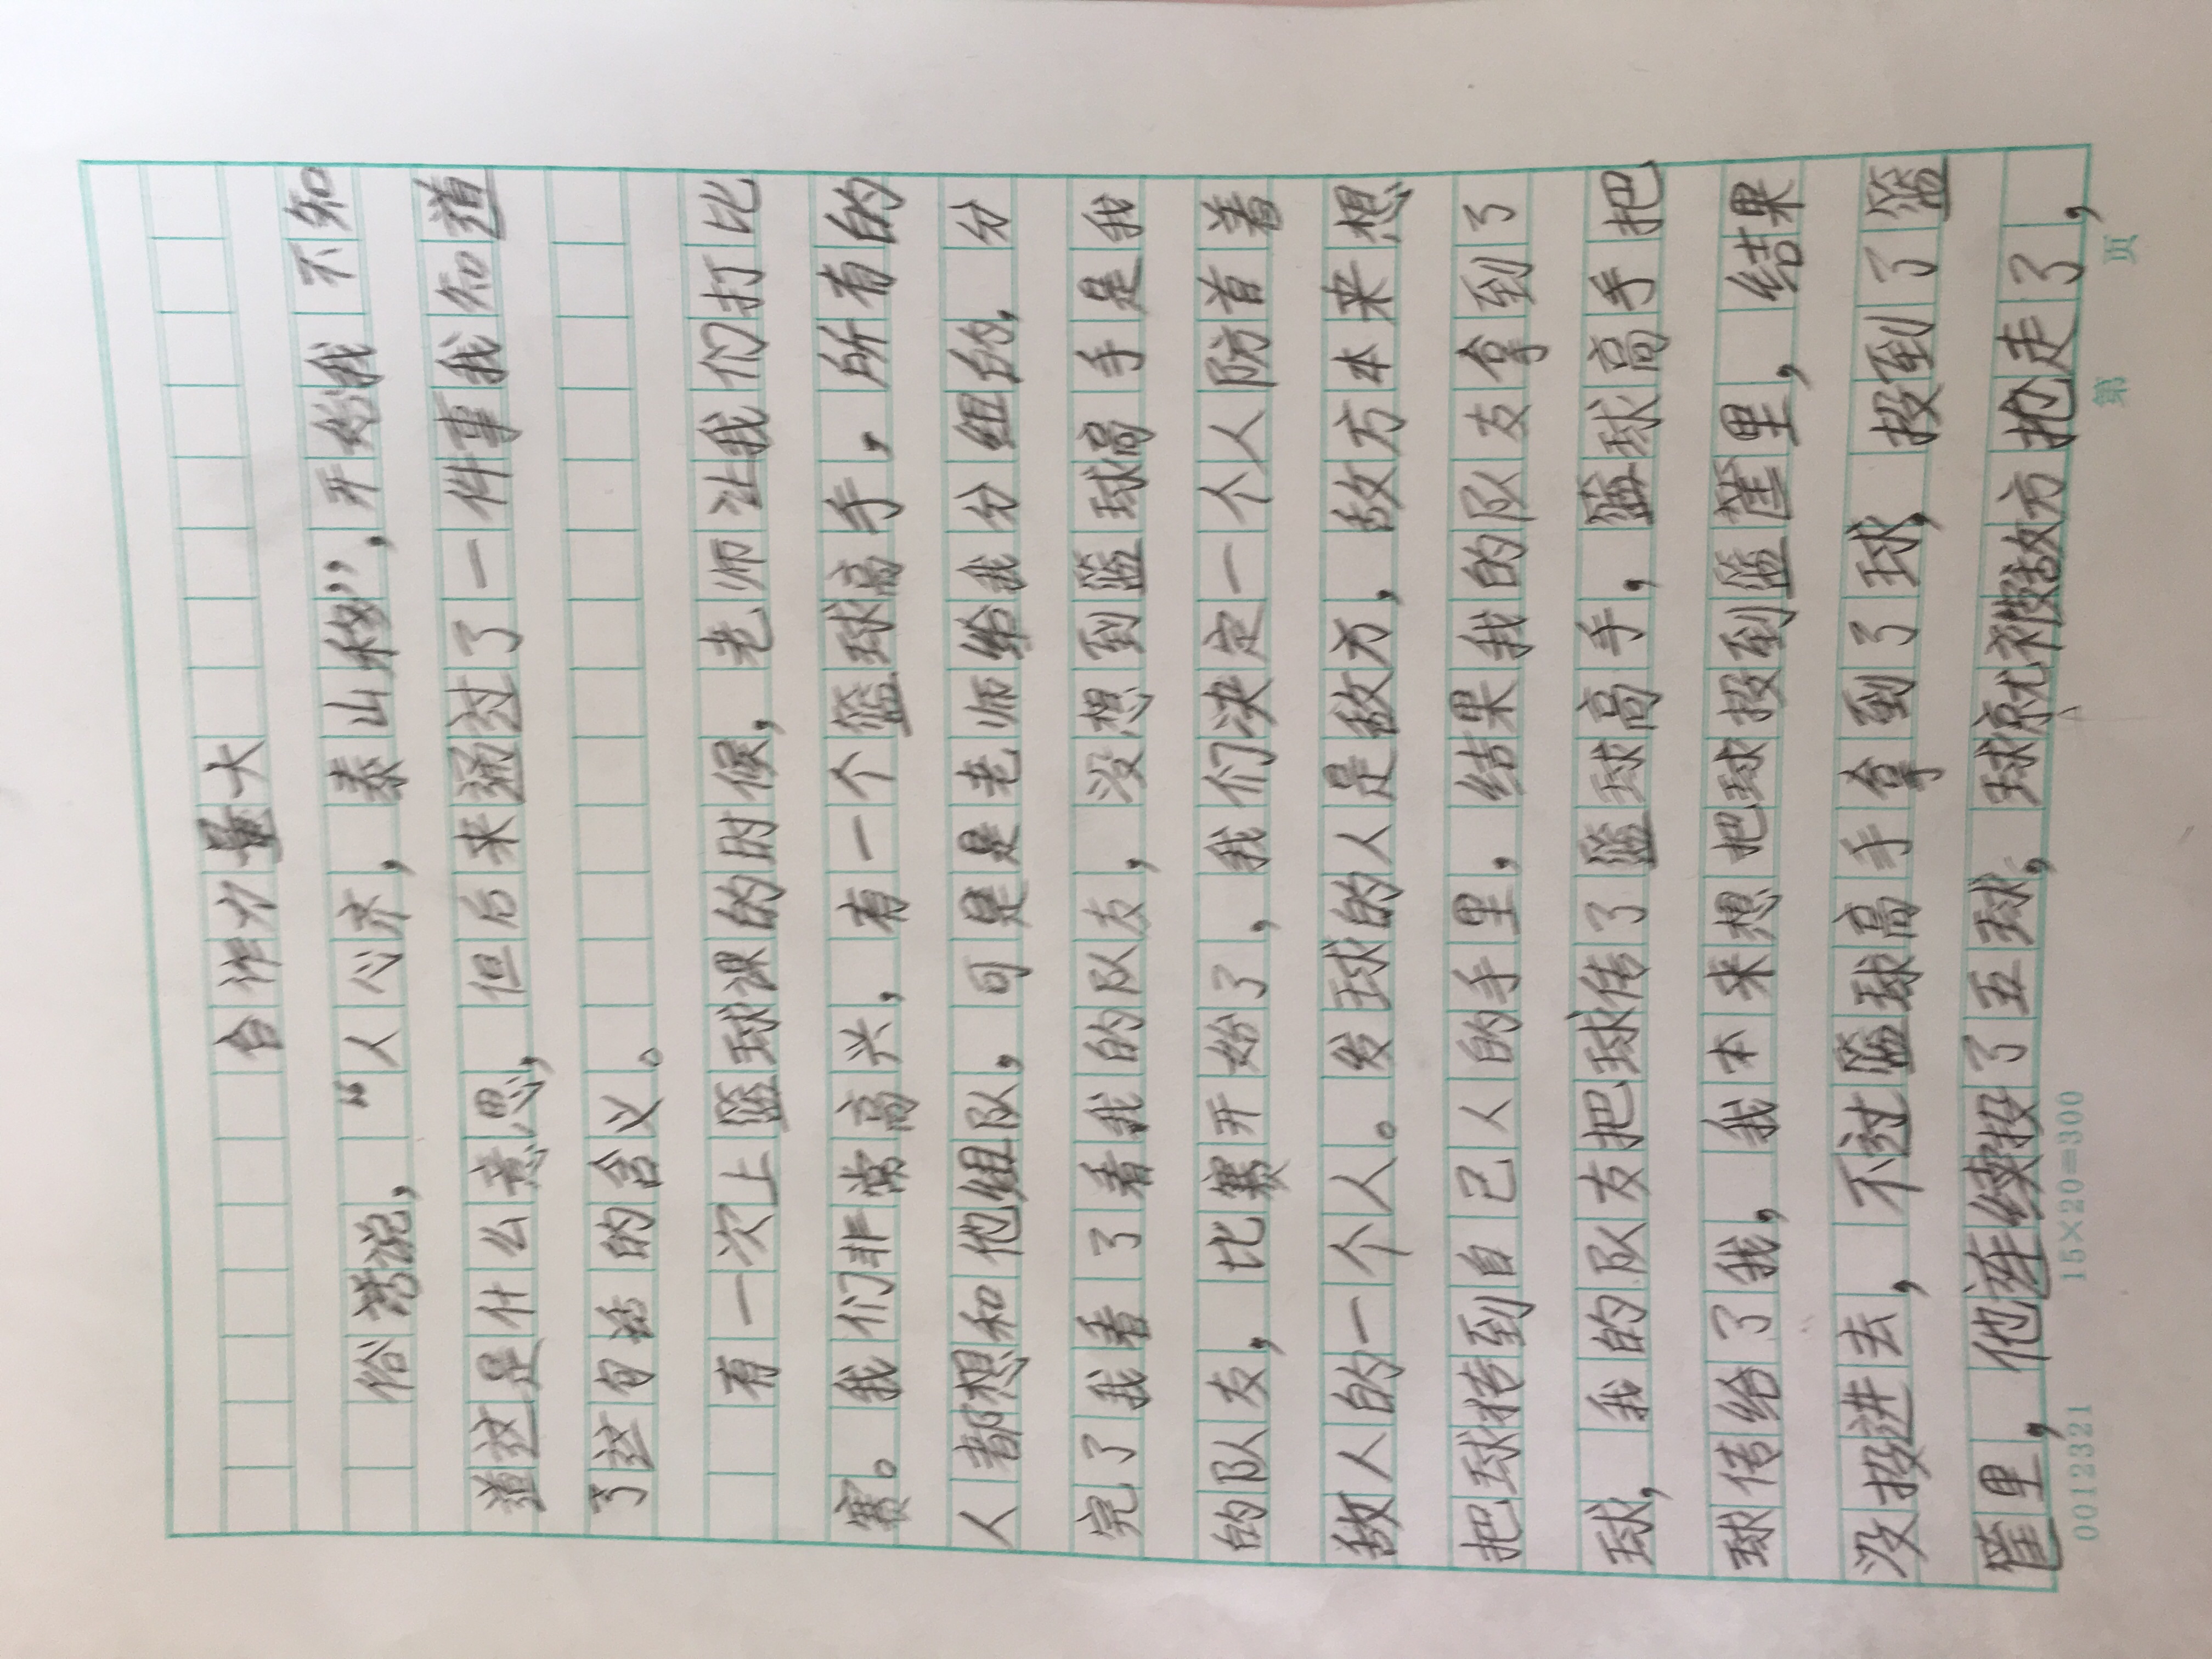 合作力量大
俗话说，“人心齐，泰山移”，开始我不知
道这是什么意思，但后来通过了一件事我知道
了这句话的含义。
有一次上篮球课的时候，老师让我们打比
赛。我们非常高兴，有一个篮球高手，所有的
人都想和他组队，可是是老师给我分组的，分
完了我看了看我的队友，没想到篮球高手是我
的队友，比赛开始了，我们决定一个人防首着
敌人的一个人。发球的人是敌方，敌方本来想
把球转到自己人的手里，结果我的队友拿到了
球，我的队友把球传了篮球高手，篮球高手把
球传给了我，我本来想把球投到篮筐里，结果
没投进去，不过篮球高手拿到了球，投到了篮
筐里，他连续投了五球，球就被敌方抢走了，
0012321 15×20=300 第 页